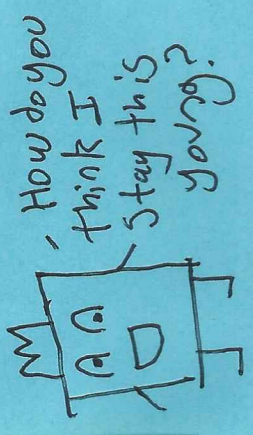 How do you
think I
stay this
young?